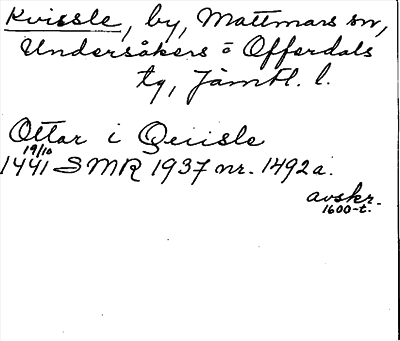 Kvissle, by, Mattmars sn,
Undersåkers o Offerdals
tg, Jämtl. l.
Ottar i Qviisle
19/10
1441 SMR 1937 nr. 1492a.
avskr.
1600-t.